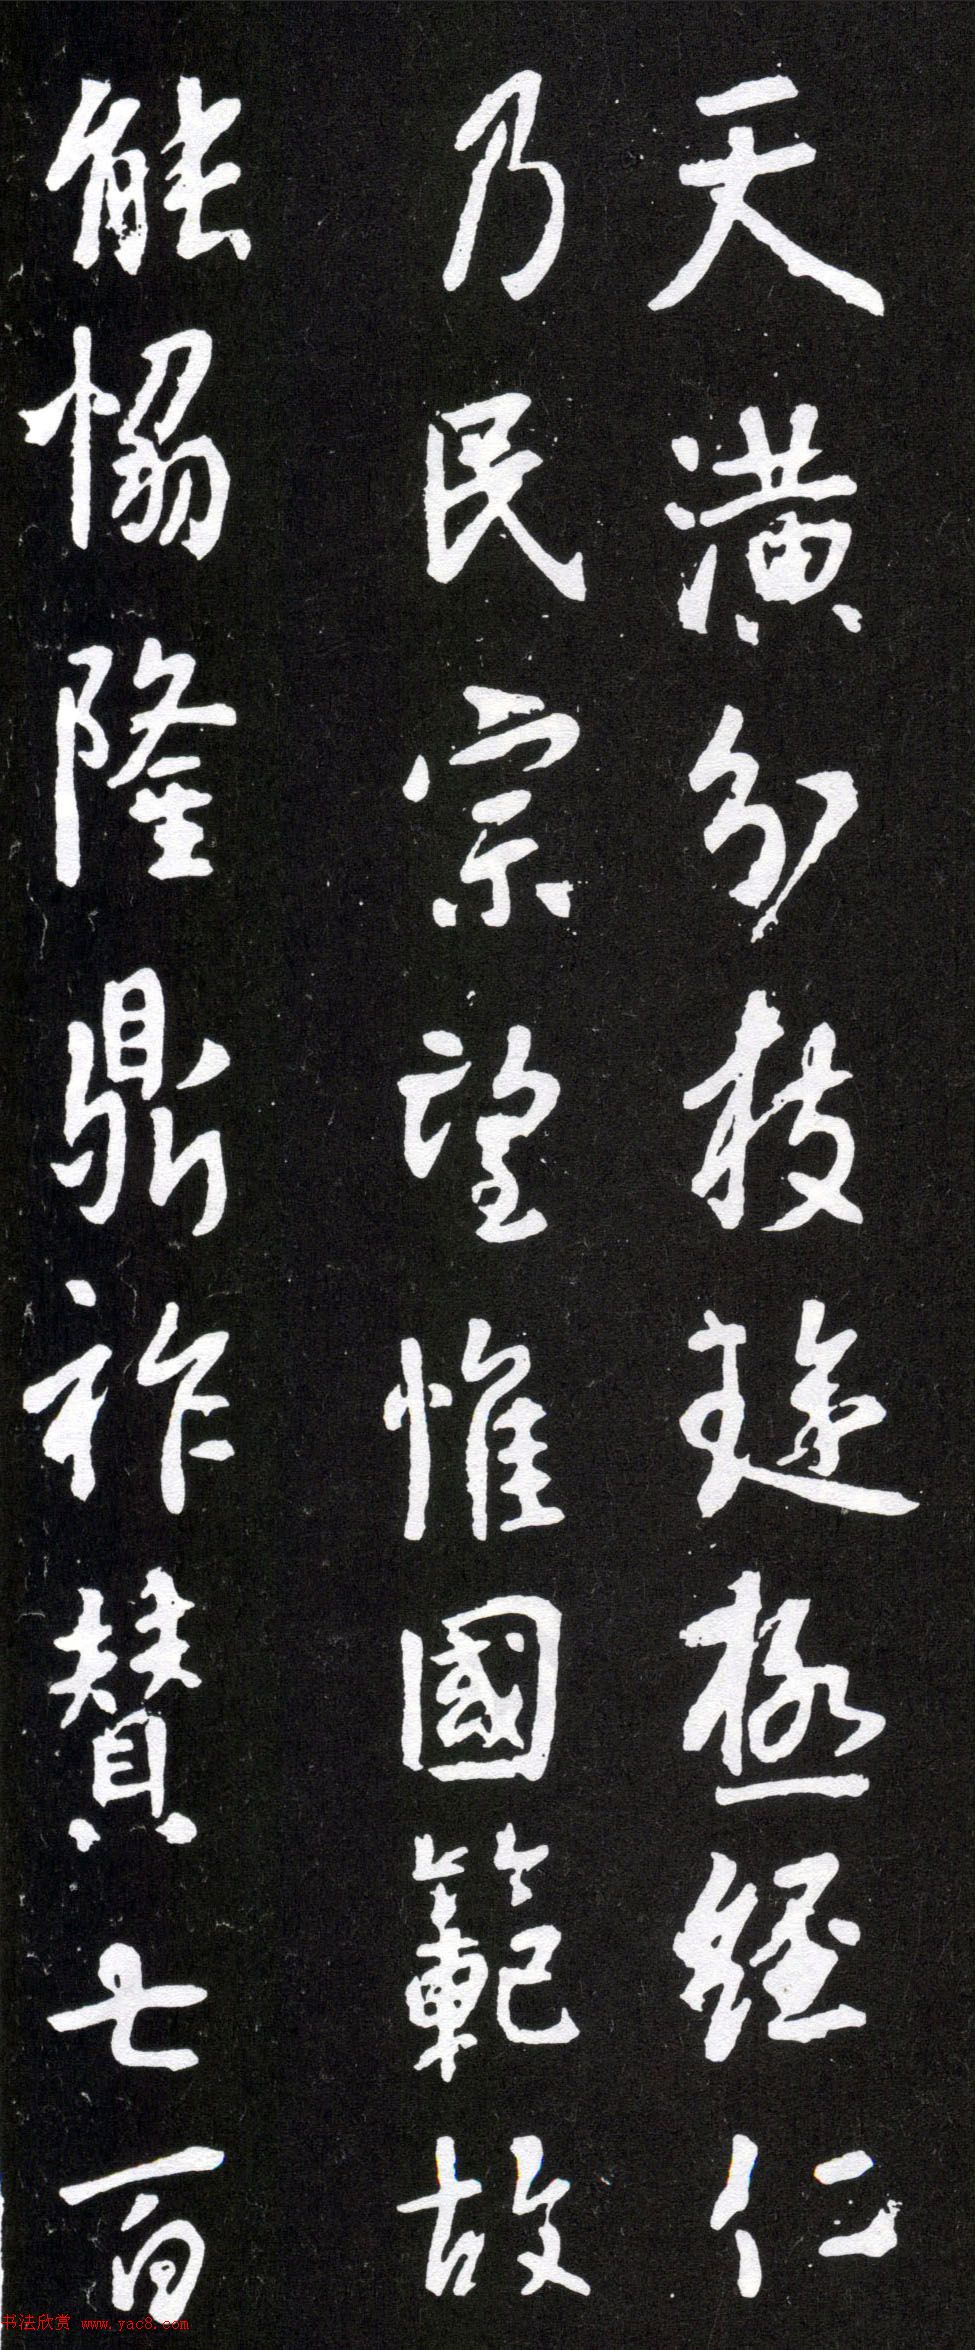 天潢分枝璇極經仁
乃民宗望惟國範故
能恊隆鼎祚贊七百
书法欣赏 www.yac8.com